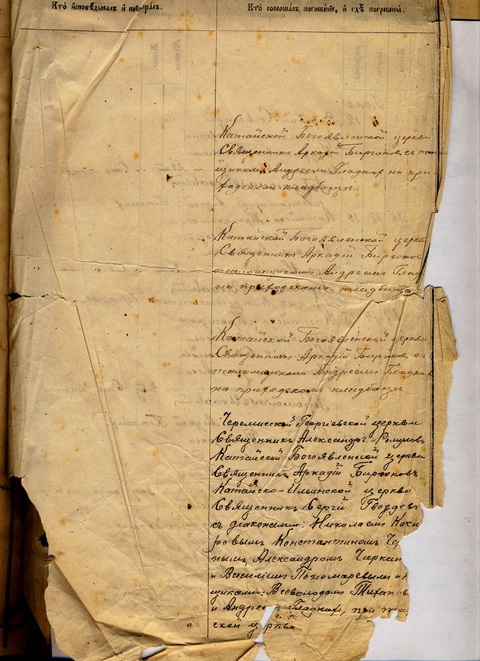 Кто исповѣдывалъ и пріобщалъ.
Кто совершалъ погребеніе, и гдѣ погребены.
Катайской Богоявленской церкви
Священникъ Аркадій Бирюковъ съ
Андреемъ Гладких на при
ходскомъ кладбищѣ
Катайской Богоявленской церкви
Священникъ Аркадій Бирюковъ
псаломщикомъ Андреемъ Глад
на приходскомъ кладбищѣ
Катайской Богоявленской церкви
Священникъ Аркадій Бирюковъ, съ
псаломщикомъ Андреемъ Гладких
на приходскомъ кладбищѣ
Черемисской Георгіевской церкви
Священникъ Александръ
Катайской Богоявленской церкви
Священникъ Аркадій Бирюковъ
Катайско-Ильинской церкви
Священникъ Сергій Гвоздевъ
съ діаконами: Николаемъ
ровымъ Константиномъ Чер
нымъ, Александромъ
и Василіемъ Пономаревымъ и
щиками: Всеволодомъ Тиханов
и Андреемъ Гладких, при
ской церкви